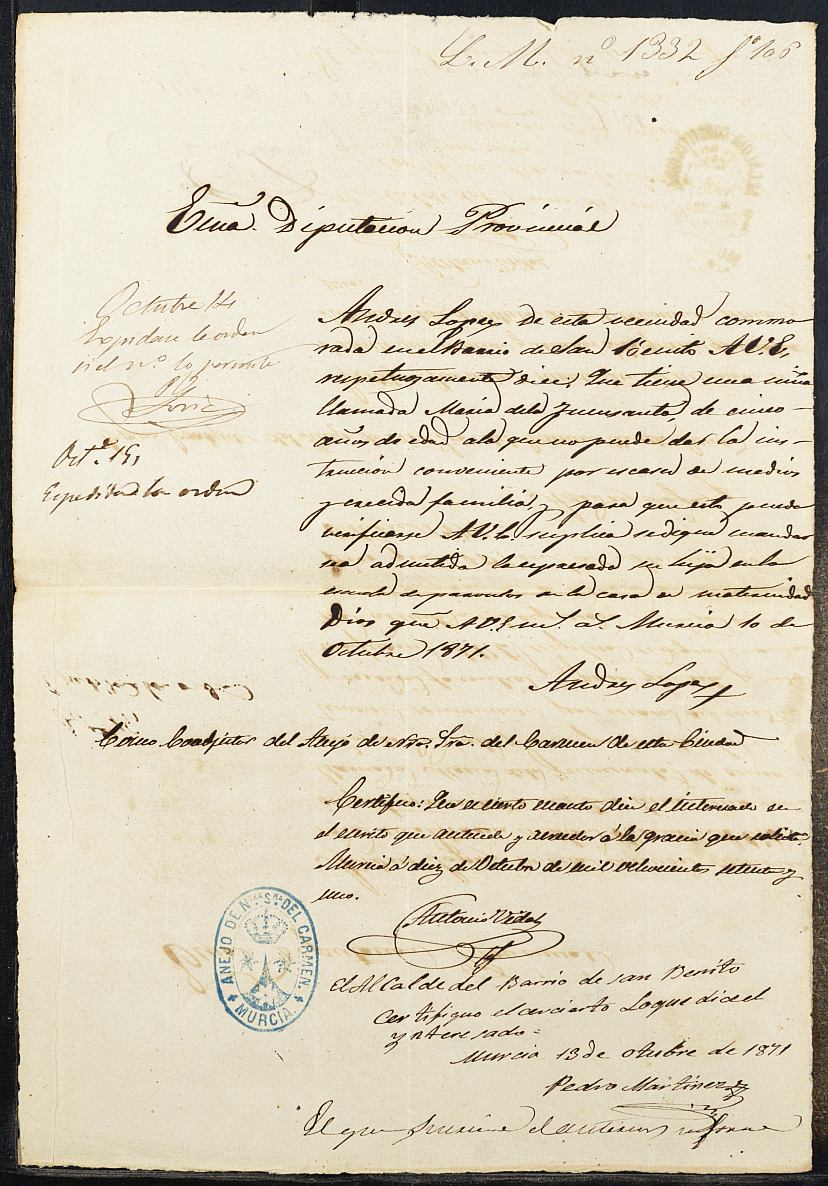 L. M. nº 1332 fº 106
Exma. Diputacion Provincial
Octubre 14
Expidase la orden
si el nº lo permite
Octe. 15,
Expedida la orden
Andres Lopez de esta vecindad commo
rada en el Barrio de San Benito A V. E.
respetuosamente dice: Que tiene una niña
llamada Maria dela Fuensanta, de cinco
años de edad ala que no puede dar la ins-
truccion conveniente por escases de medios
y crecida familia, y para que esto pueda
verificarse A V. E. suplica se digne mandar
sea admitida la espresada su hija en la
escuela de parvulos de la casa de maternidad
Dios gue. A V. E. m. a. Murcia 10 de
Octubre 1871.
Andres Lopez
Como Coadjutor del Anejo de Ntra. Sra. del Carmen de esta Ciudad
Certifico: Que es cierto cuanto dice el interesado en
el escrito que antecede y acreedor á la gracia que solicita.
Murcia á diez de Octubre de mil ochocientos setenta y
uno.
Antonio Vidal
ANEJO DE Nª Sª DEL CARMEN.
MURCIA.
el Alcalde del Barrio de san Benito
Certifiquo el cercierto Loque dice el
ynteresado=
Murcia 13 de otubre de 1871
Pedro Martinez
El que suscribe el anterior informe